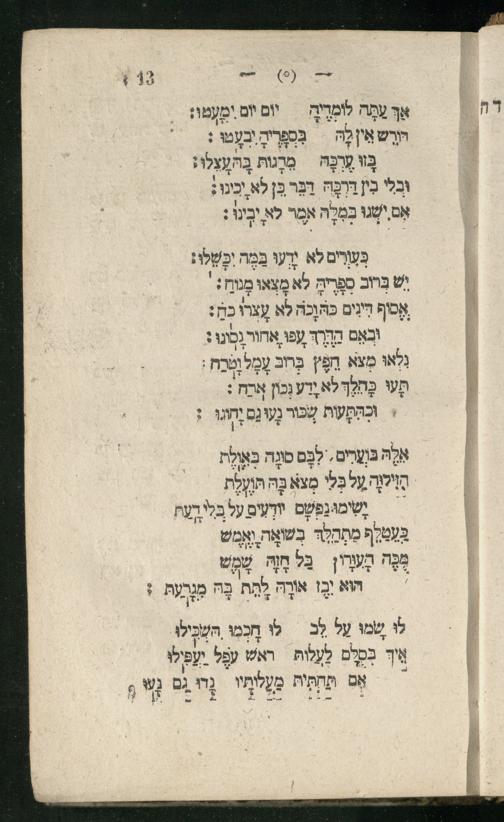 13 — (०) —
אַךְ עַתָּה לוֹמְדֶיהָ יוֹם יוֹם יִמְעָטוּ:
דּוֹרֵשׁ אֵין לָהּ בִּסְפָרֶיהָ יִבְעָטוּ:
בָּזוּ עֶרְכָּהּ מֵרָגוֹת בָּהּ עָצֵלוּ:
וּבְלִי בִין דַּרְכָּהּ דַּבֵּר כֵּן לֹא יָכִינוּ:
אִם יִשְׁגוּ בְּמִלָּה אֹמֶר לֹא יָבִינוּ:
כְּעִוְרִים לֹא יָדְעוּ בַּמֶּה יִכָּשֵׁלוּ:
יֵשׁ בְּרוֹב סְפָרֶיהָ לֹא מָצְאוּ מָנוֹחַ:
אֱסוֹף דִּינִים כֹּה וָכֹה לֹא עָצְרוּ כֹחַ:
וּבְאֵם הַדֶּרֶךְ עָפוּ אָחוֹר נָסוֹגוּ:
נִלְאוּ מְצֹא חֵפֶץ בְּרוֹב עָמָל וָטֹרַח:
תָּעוּ כְּהֵלֶךְ לֹא יָדַע נְכוֹן אֹרַח:
וּכְהִתָּעוֹת שִׁכּוֹר נָעוּ גַם יָחוֹגוּ:
אֵלֶּה בּוֹעֲרִים, לִבָּם סוּגָה בְּאִוֶּלֶת
הִזִּילוּהָ עַל בְּלִי מְצֹא בָּהּ תּוֹעֶלֶת
יָשִׂימוּ נַפְשָׁם יוֹדְעִים עַל בְּלִי דָעַת
כַּעֲטַלֵּף מִתְהַלֵּךְ בְּשׁוֹאָה וָאֶמֶשׁ
מֻכֵּה הָעִוָּרוֹן בַּל חָזָה שָׁמֶשׁ
הוּא יִבֶז אוֹרָהּ לָתֵת בָּהּ מִגְרָעַת:
לוּ שָׂמוּ עַל לֵב לוּ חָכְמוּ הִשְׂכִּילוּ
אֵיךְ בְּסֻלָּם לַעֲלוֹת רֹאשׁ עֹפֶל יַעְפִּילוּ
אִם תַּחְתִּית מַעֲלוֹתָיו נָדוּ גַם נָעוּ
דח